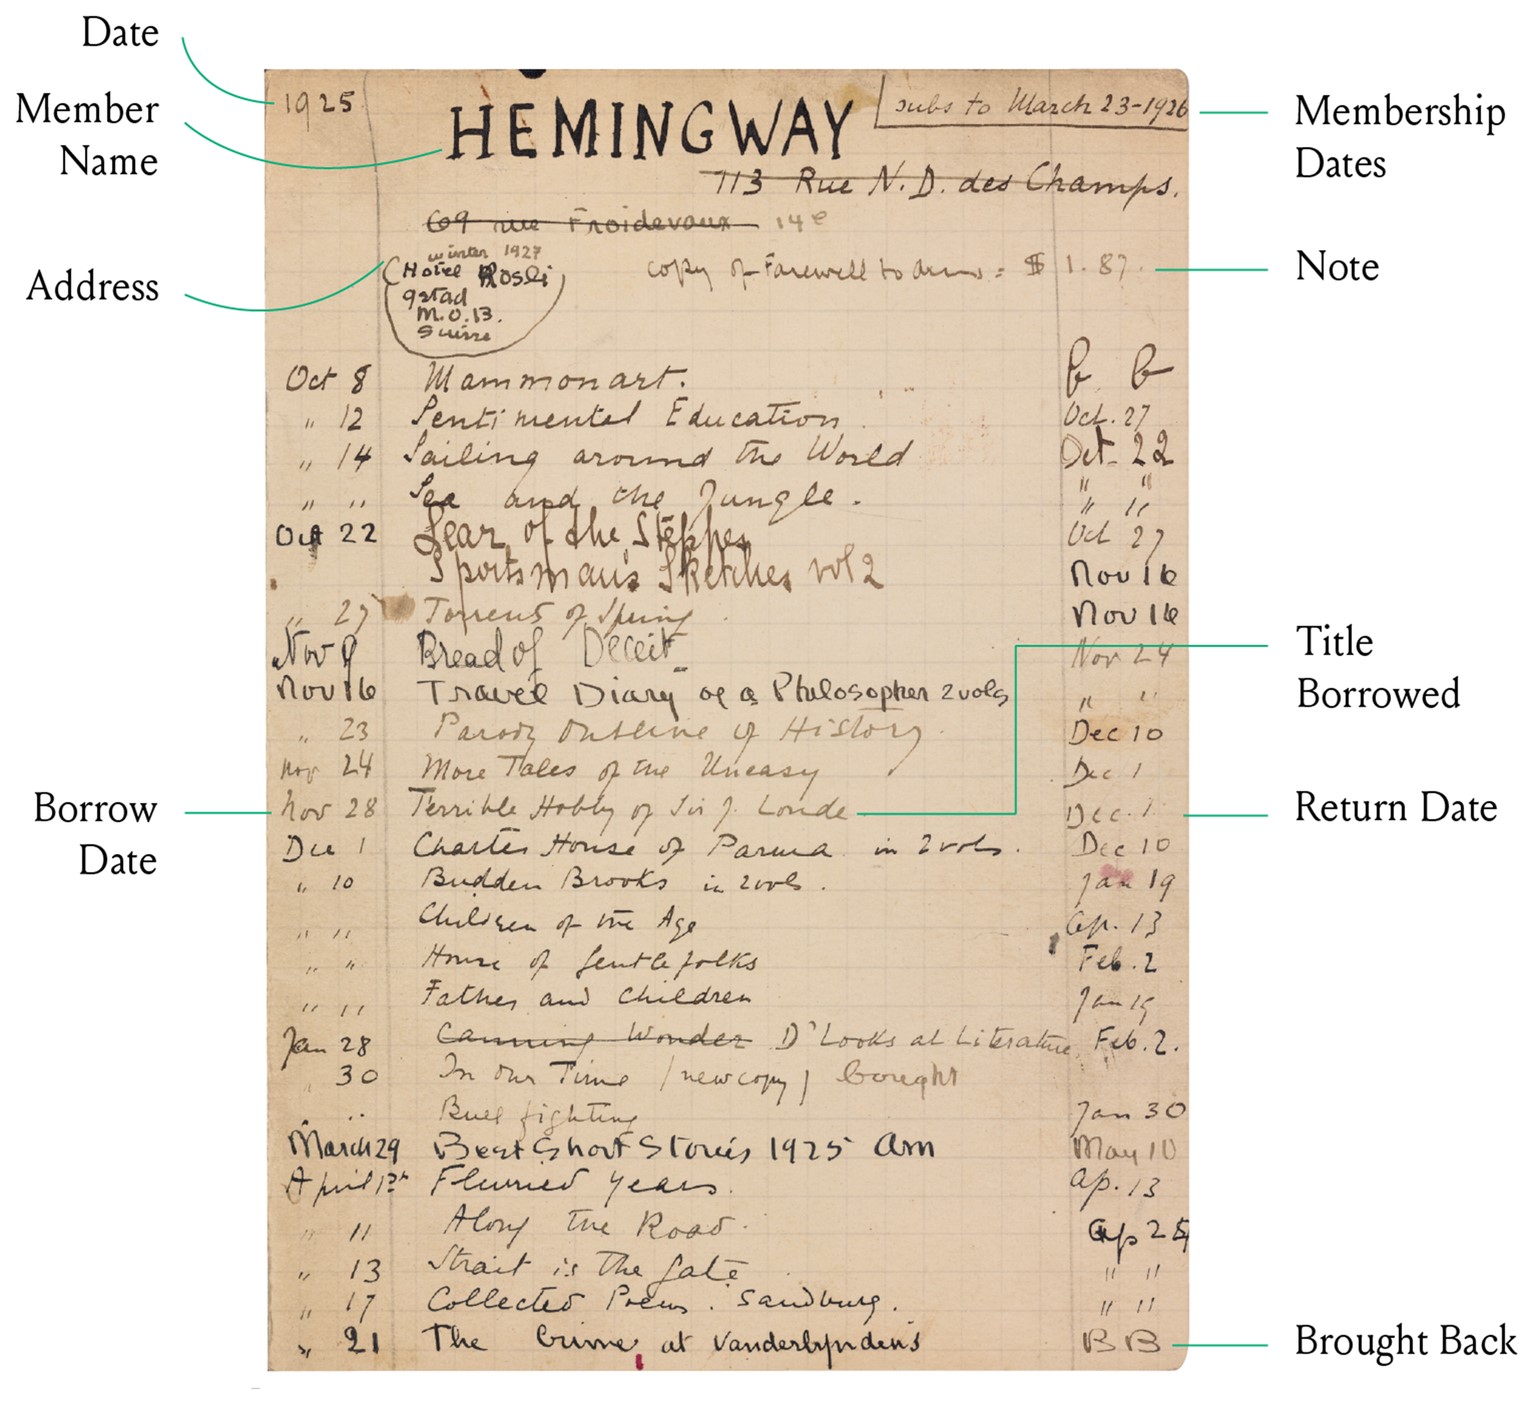 Date
Member
Name
Address
Borrow
Date
1925
HEMINGWAY
subs to March 23-1926
113 Rue N.D. des Champs.
69 rue Froidevaux 14e
winter 1927
(Hotel Rosli
gstad
M.O.B.
Suisse
copy of Farewell to Arms = $ 1.87.
Oct 8 Mammonart. B B
" 12 Sentimental Education Oct. 27
" 14 Sailing around the World Oct. 22
" " Sea and the Jungle. " "
Oct 22 Lear of the Steppes Oct 27
Sportsman's Sketches vol 2 Nov 16
" 27 Torrents of Spring Nov 16
Nov 9 Bread of Deceit Nov 24
Nov 16 Travel Diary of a Philosopher 2 vols " "
" 23 Parody Outline of History. Dec 10
Nov 24 More Tales of the Uneasy Dec 1
Nov 28 Terrible Hobby of Sir J. Londe Dec. 1
Dec 1 Charter House of Parma in 2 vols. Dec 10
" 10 Budden Brooks in 2 vols. Jan 19
" " Children of the Age Ap. 13
" " House of Gentlefolks Feb. 2
" " Fathers and Children Jan 19
Jan 28 Canning Wonder D' Looks at Literature Feb. 2.
" 30 In our Time (new copy) bought
" " Bull fighting Jan 30
March 29 Best Short Stories 1925 Am May 10
April 1st Flurried Years. Ap. 13
" 11 Along the Road. Ap 25
" 13 Strait is the Gate " "
" 17 Collected Poems. Sandburg. " "
" 21 The Crime at Vanderlynden's B B
Membership
Dates
Note
Title
Borrowed
Return Date
Brought Back